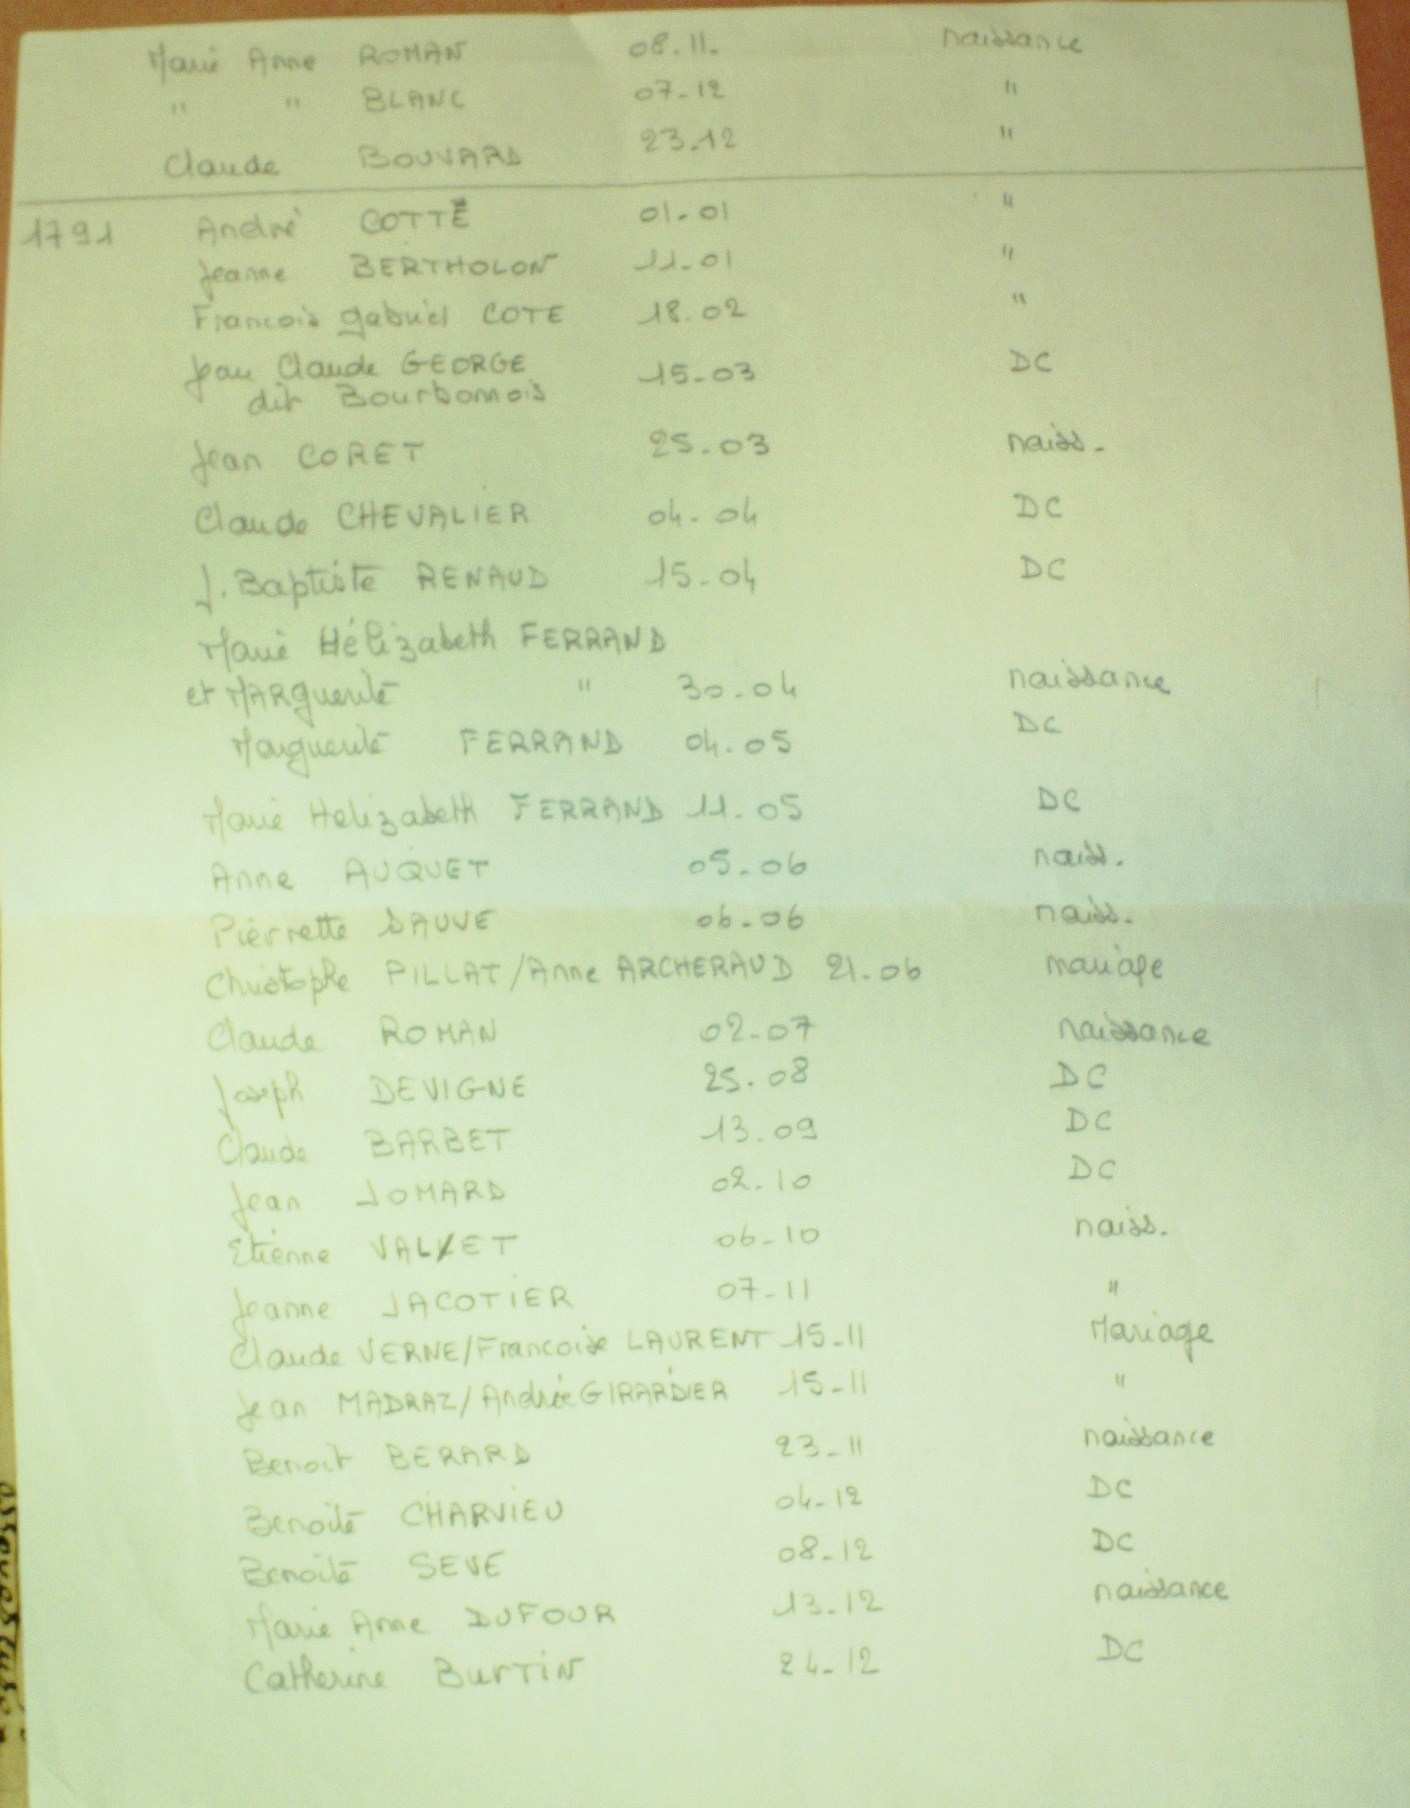 Marie Anne ROMAN 08.11. naissance
" " BLANC 07-12 "
Claude BOUVARD 23.12 "
1791 André COTTE 01-01 "
Jeanne BERTHOLON 11-01 "
Francois gabriel COTE 18.02 "
Jean Claude GEORGE 15-03 DC
dit Bourbonnois
Jean CORET 25-03 naiss.
Claude CHEVALIER 04-04 DC
J. Baptiste RENAUD 15-04 DC
Marie Hélizabeth FERRAND
et MARguerite " 30-04 naissance
Marguerite FERRAND 04.05 DC
Marie Helizabeth FERRAND 11.05 DC
Anne AUQUET 05-06 naiss.
Pierrette SAUVE 06-06 naiss.
Christophe PILLAT/Anne ARCHERAUD 21.06 mariage
Claude ROMAN 02-07 naissance
Joseph DEVIGNE 25.08 DC
Claude BARBET 13.09 DC
Jean JOMARD 02-10 DC
Etienne 06-10 naiss.
Jeanne JACOTIER 07-11 "
Claude VERNE/Francoise LAURENT 15-11 Mariage
Jean MADRAZ/Andrée GIRARDIER 15-11 "
Benoit BERARD 23-11 naissance
Benoite CHARVIEU 04-12 DC
Benoite SEVE 08-12 DC
Marie Anne DUFOUR 13-12 naissance
Catherine BURTIN 24-12 DC